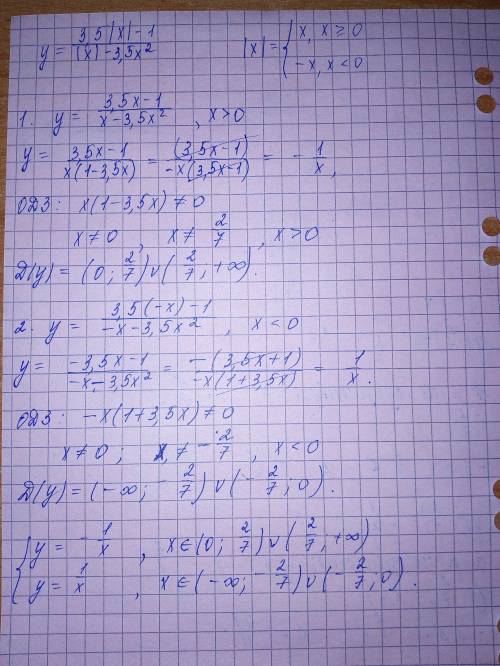 y = (3,5|x|-1)/(|x|-3,5x²)    |x| = { x, x ≥ 0
-x, x < 0
1. y = (3,5x-1)/(x-3,5x²) , x>0
y = (3,5x-1)/(x(1-3,5x)) = (3,5x-1)/(-x(3,5x-1)) = - 1/x,
ОДЗ: x(1-3,5x) ≠ 0
x ≠ 0 , x ≠ 2/7 , x>0
D(y) = (0; 2/7) ∪ (2/7; +∞).
2. y = (3,5(-x)-1)/(-x-3,5x²) , x < 0
y = (-3,5x-1)/(-x-3,5x²) = (-(3,5x+1))/(-x(1+3,5x)) = 1/x.
ОДЗ: -x(1+3,5x) ≠ 0
x ≠ 0; x ≠ -2/7 , x < 0
D(y) = (-∞; -2/7) ∪ (-2/7; 0).
{ y = -1/x , x ∈ (0; 2/7) ∪ (2/7; +∞)
y = 1/x , x ∈ (-∞; -2/7) ∪ (-2/7; 0).